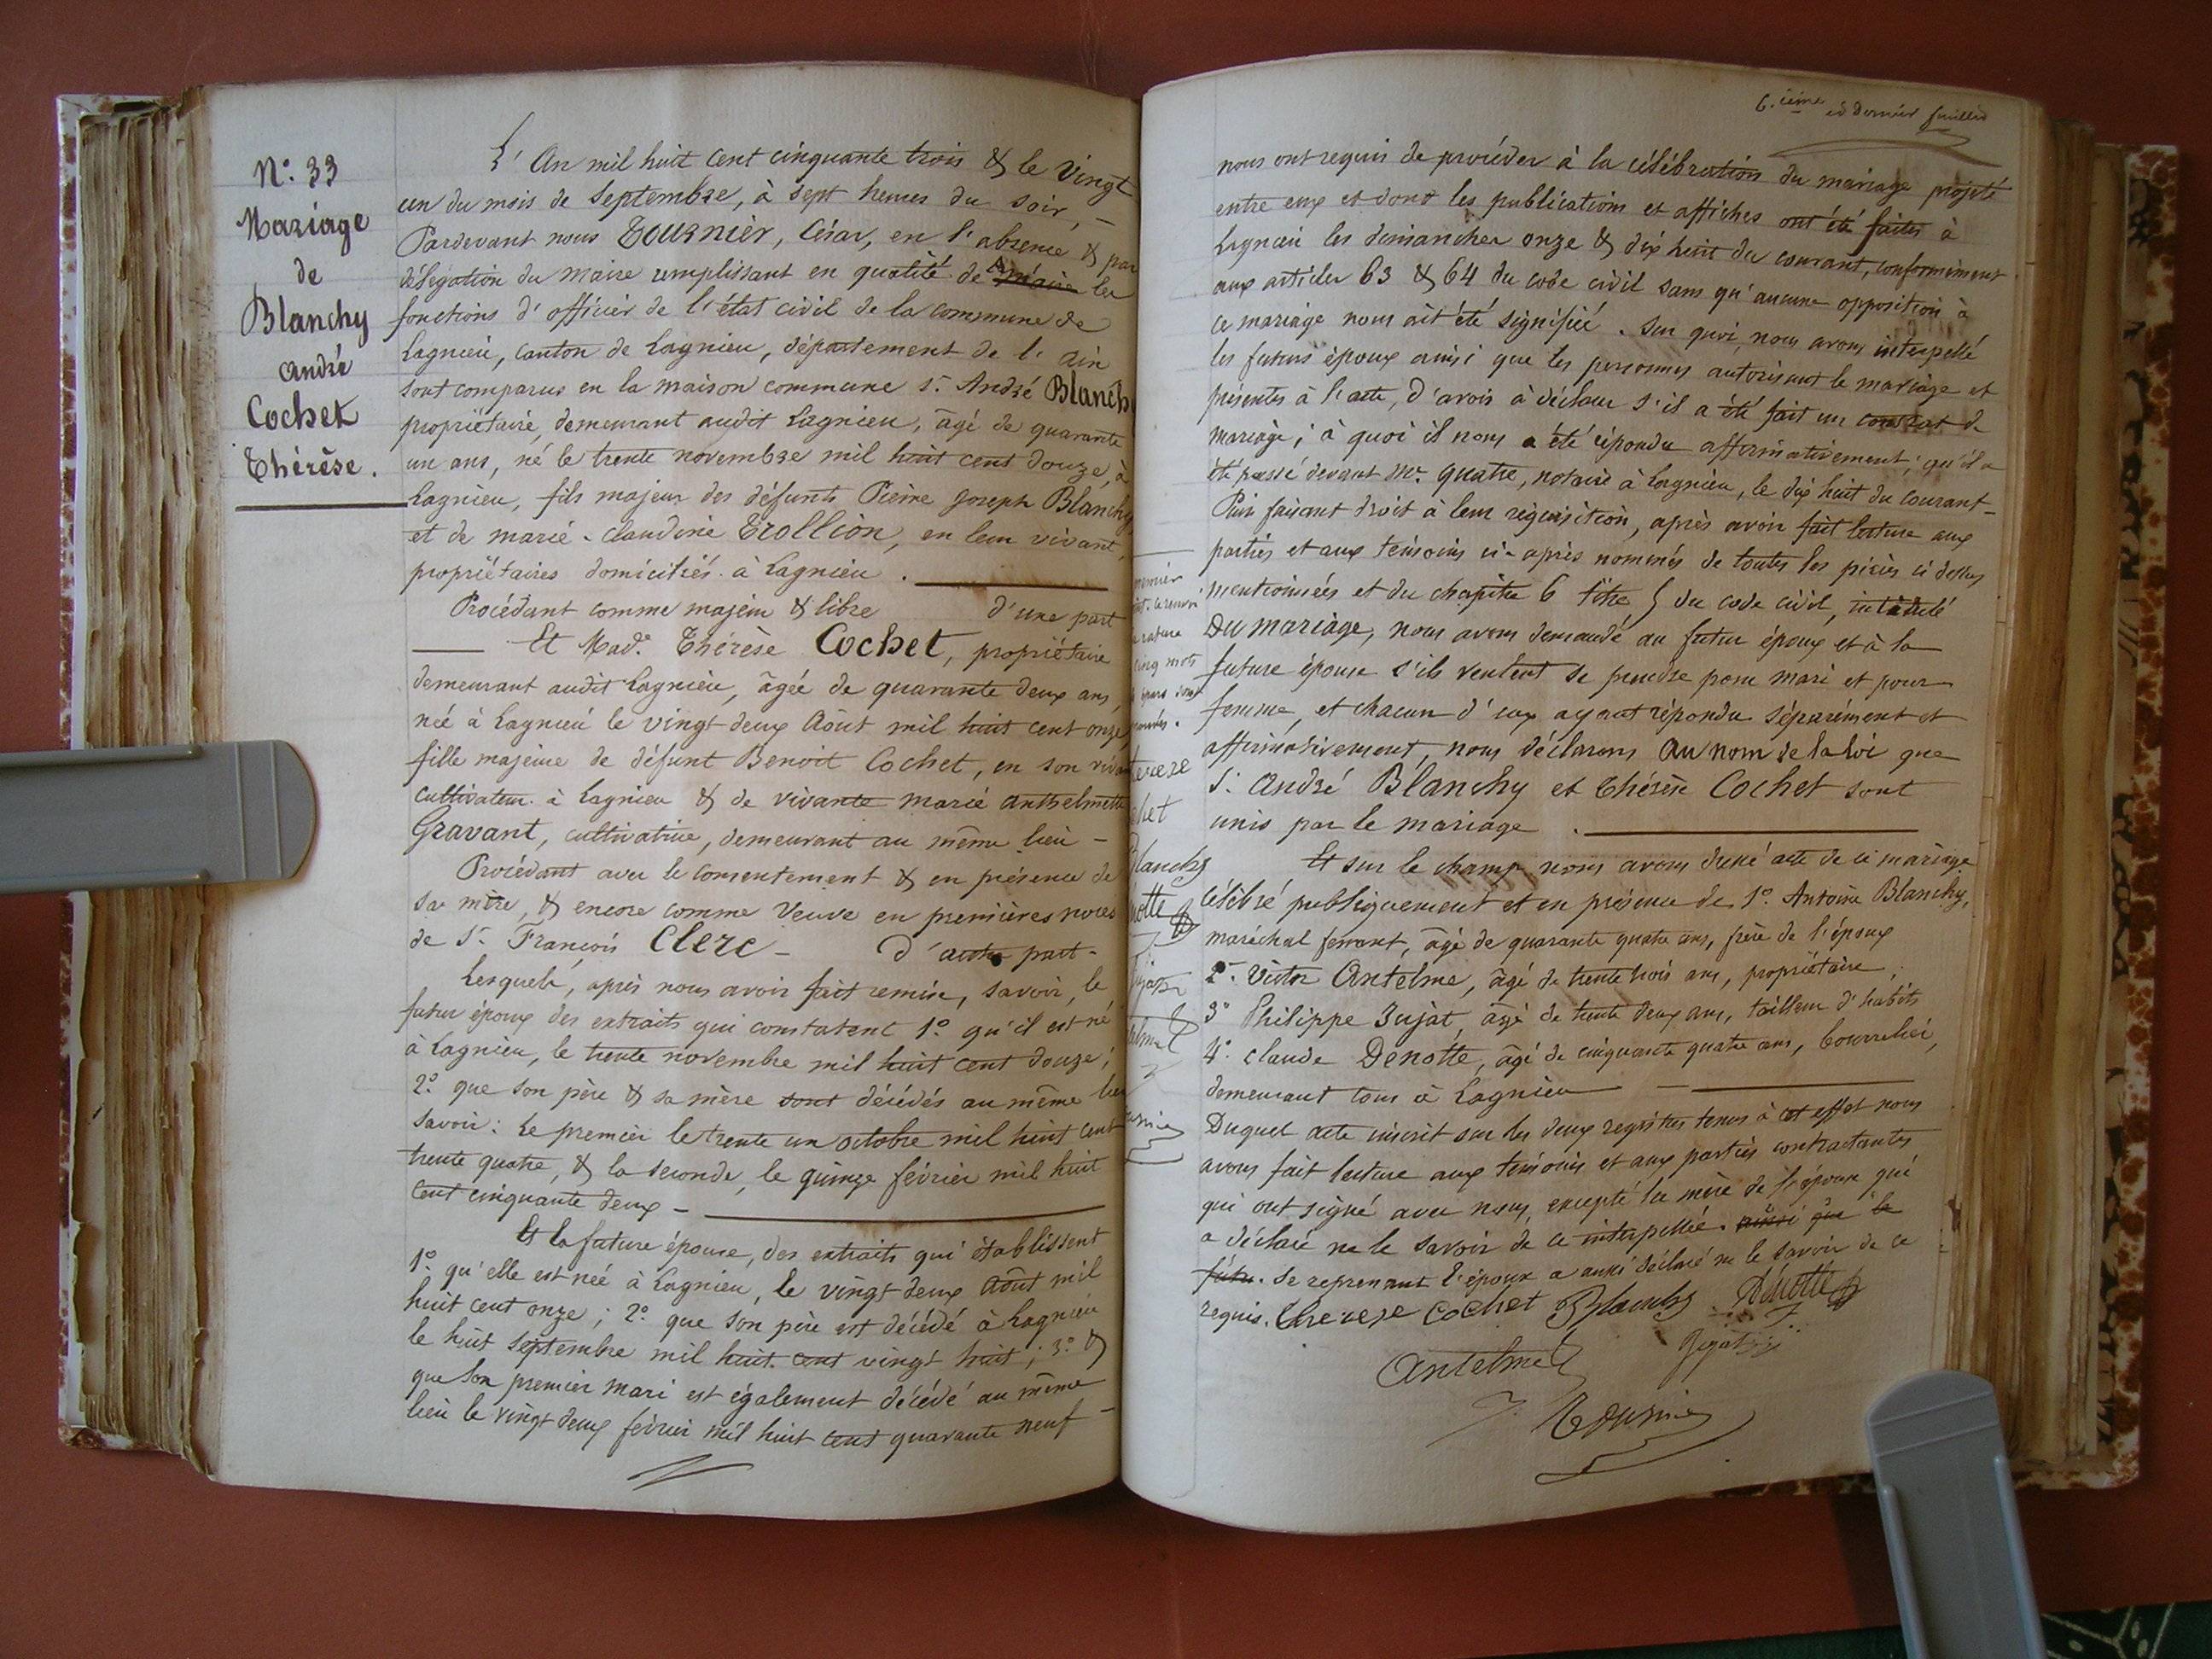 N.° 33
Mariage
de
Blanchy
André
Cochet
Thérèse.
L' An mil huit cent cinquante trois & le vingt
un du mois de Septembre, à sept heures du soir, –
Pardevant nous Tournier, César, en l'absence & par
délégation du Maire remplissant en qualité de maire les
fonctions d'officier de l'état civil de la commune de
Lagnieu, canton de Lagnieu, département de l'ain
sont comparus en la maison commune s.r André Blanchy
propriétaire, demeurant audit Lagnieu, âgé de quarante
un ans, né le trente novembre mil huit cent douze, à
Lagnieu, fils majeur des défunts Pierre Joseph Blanchy
et de marie-claudine Trollion, en leur vivant,
propriétaires domiciliés à Lagnieu.
Procédant comme majeur & libre d'une part
Et Mad.e Thérèse Cochet, propriétaire
demeurant audit Lagnieu, âgée de quarante deux ans,
née à Lagnieu le vingt deux Août mil huit cent onze,
fille majeure de défunt Benoit Cochet, en son vivant
cultivateur à Lagnieu & de vivante marie anthelmette
Gravant, cultivatrice, demeurant au même lieu –
Procédant avec le consentement & en présence de
sa mère, & encore comme Veuve en premières noces
de S.r François Clerc – D'autre part –
Lesquels, après nous avoir fait remise, savoir, le
futur époux des extraits qui constatent 1.° qu'il est né
à Lagnieu, le trente novembre mil huit cent douze;
2.° que son père & sa mère sont décédés au même lieu
savoir: Le premier le trente un octobre mil huit cent
trente quatre, & la seconde, le quinze février mil huit
cent cinquante deux –
Et la future épouse, des extraits qui établissent
1.° qu'elle est née à Lagnieu, le vingt deux Août mil
huit cent onze; 2.° que son père est décédé à Lagnieu
le huit septembre mil huit cent vingt huit; 3.° &
que son premier mari est également décédé au même
lieu le vingt deux février mil huit cent quarante neuf –
6.ième et dernier feuillet
nous ont requis de procéder à la célébration du mariage projeté
entre eux et dont les publications et affiches ont été faites à
Lagnieu les dimanches onze & dix huit du courant, conformément
aux articles 63 & 64 du code civil sans qu'aucune opposition à
ce mariage nous ait été signifiée. Sur quoi, nous avons interpellé
les futurs époux ainsi que les personnes autorisant le mariage et
présentes à l'acte, d'avoir à déclarer s'il a été fait un contrat de
mariage; à quoi il nous a été répondu affirmativement; qu'il a
été passé devant M.e Quatre, notaire à Lagnieu, le dix huit du courant –
Puis faisant droit à leur réquisition, après avoir fait lecture aux
parties et aux témoins ci-après nommés de toutes les pièces ci dessus
mentionnées et du chapitre 6 titre 5 du code civil, intitulé
Du mariage, nous avons demandé au futur époux et à la
future épouse s'ils veulent se prendre pour mari et pour
femme, et chacun d'eux ayant répondu séparément et
affirmativement, nous déclarons au nom de la loi que
S.r André Blanchy et Thérèse Cochet sont
unis par le mariage.
Et sur le champ nous avons dressé acte de ce mariage
célébré publiquement et en présence de 1.° Antoine Blanchy,
maréchal ferrant, âgé de quarante quatre ans, frère de l'époux
2.° Victor Antelme, âgé de trente trois ans, propriétaire,
3.° Philippe Jujat, âgé de trente deux ans, tailleur d'habits
4.° Claude Denotte, âgé de cinquante quatre ans, bourrelier,
demeurant tous à Lagnieu –
Duquel acte inscrit sur les deux registres tenus à cet effet nous
avons fait lecture aux témoins et aux parties contractantes
qui ont signé avec nous, excepté la mère de l'épouse qui
a déclaré ne le savoir de ce interpellée. ainsi que le
futur. Se reprenant l'époux a aussi déclaré ne le savoir de ce
requis. Therese Cochet Blanchy Dénotte
Antelme Jujat
Tournier